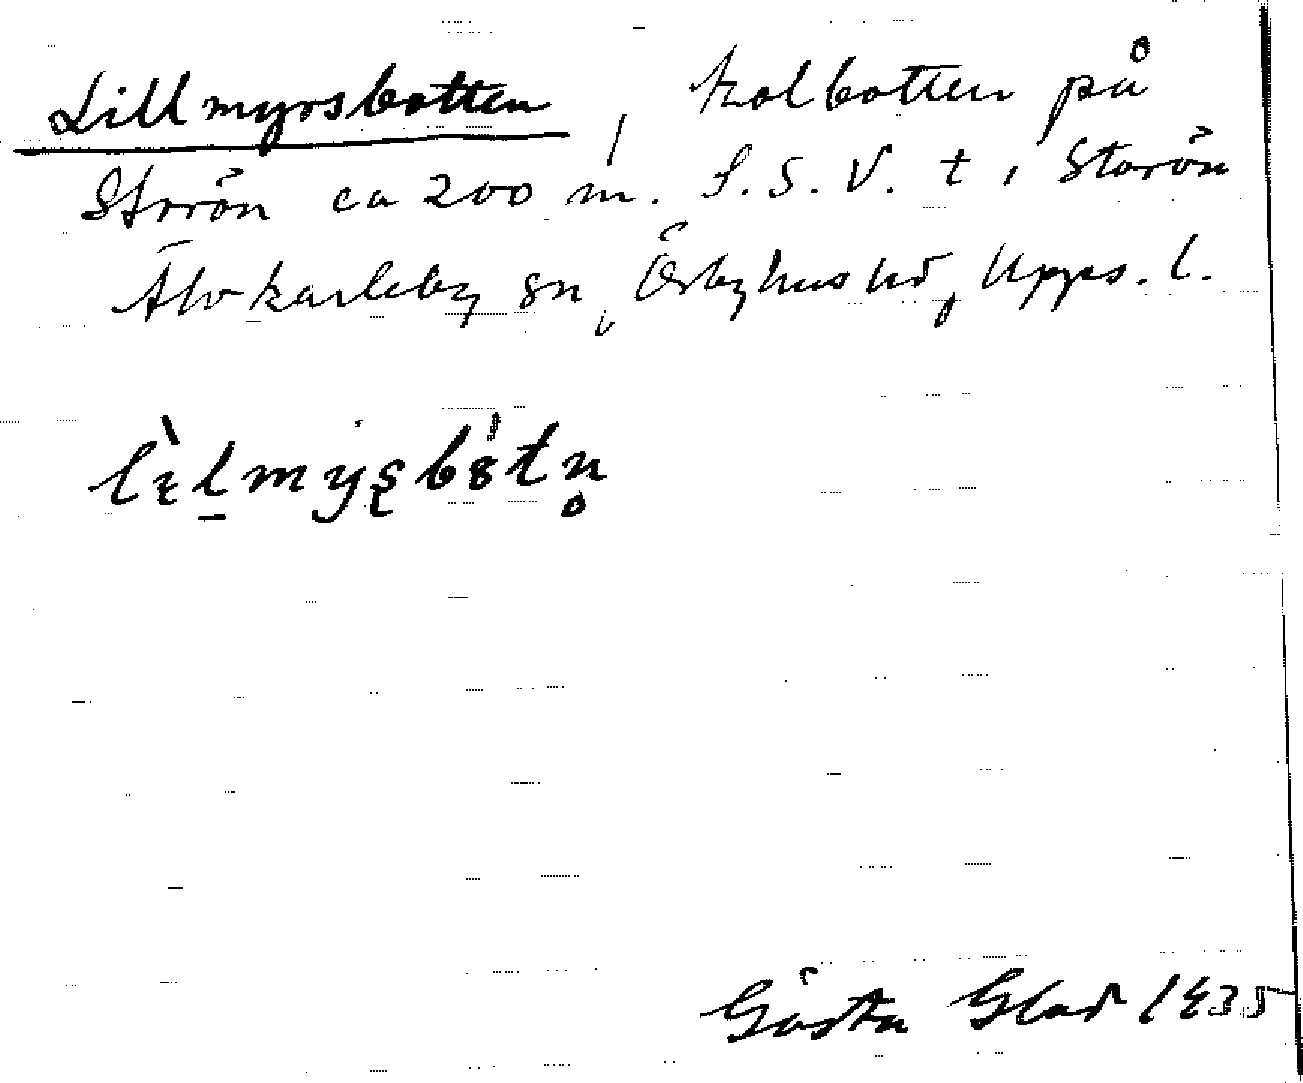 Lillmyrsbotten, kolbotten på
Storön ca 200 m. S.S.V. t, Storön
Älvkarleby sn, Örbyhus hd, Upps. l.
Gösta Glad 1935